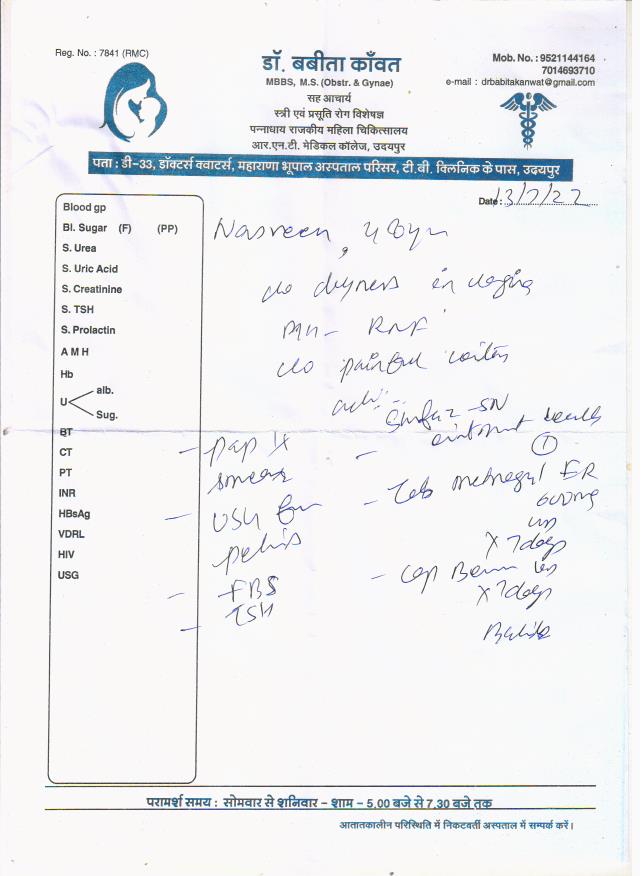 Reg. No. : 7841 (RMC)
डॉ. बबीता काँवत
MBBS, M.S. (Obstr. & Gynae)
सह आचार्य
स्त्री एवं प्रसूति रोग विशेषज्ञ
पन्नाधाय राजकीय महिला चिकित्सालय
आर.एन.टी. मेडिकल कॉलेज, उदयपुर
Mob. No. : 9521144164
7014693710
e-mail : drbabitakanwat@gmail.com
पता : डी-33, डॉक्टर्स क्वाटर्स, महाराणा भूपाल अस्पताल परिसर, टी.बी. क्लिनिक के पास, उदयपुर
Date : 13/7/22
Blood gp
Bl. Sugar (F) (PP)
S. Urea
S. Uric Acid
S. Creatinine
S. TSH
S. Prolactin
A M H
Hb
U alb.
Sug.
BT
CT
PT
INR
HBsAg
VDRL
HIV
USG
Nasreen,
c/o dryness in vagina
c/o painful
adv.
- pap
smear
- USG for
pelvis
- FBS
- TSH
- SN
ointment locally
①
- Tab metrogyl ER
600mg
x 7 days
- Cap
x 7 days
परामर्श समय : सोमवार से शनिवार - शाम - 5.00 बजे से 7.30 बजे तक
आतातकालीन परिस्थिति में निकटवर्ती अस्पताल में सम्पर्क करें।